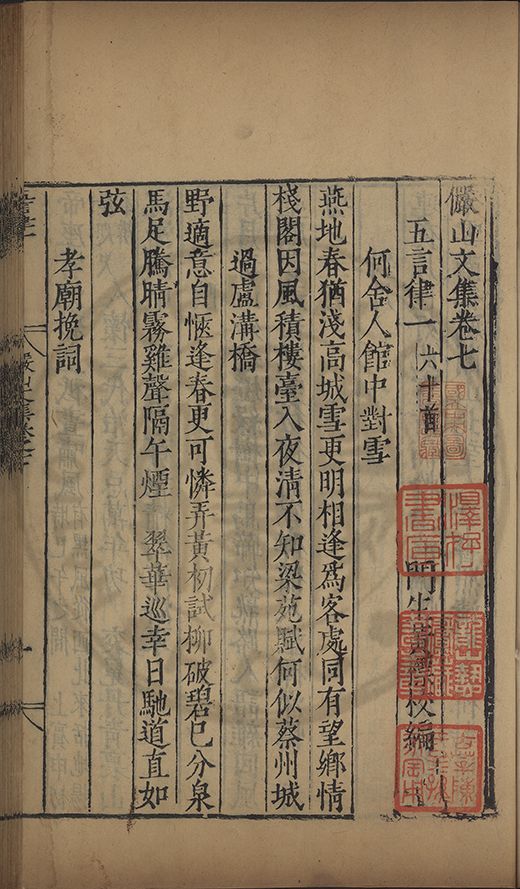 儼山文集卷七
五言律一 六十首 門生黃標校編
何舍人館中對雪
燕地春猶淺高城雪更明相逢爲客處同有望鄉情
棧閣因風積樓臺入夜清不知梁苑賦何似蔡州城
過盧溝橋
野適意自愜逢春更可憐弄黃初試柳破碧巳分泉
馬足騰晴霧雞聲隔午煙 翠華巡幸日馳道直如
弦
孝廟挽詞
澤存
書庫